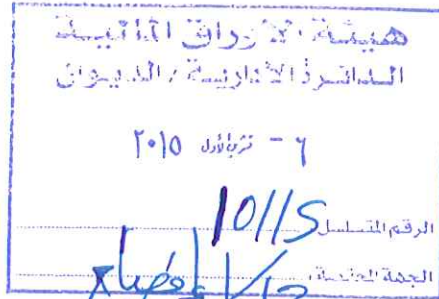 هيئة الأوراق المالية
الدائرة الادارية / الديوان
٦ - تشرين الأول ٢٠١٥
الرقم المتسلسل
الجهة المختصة